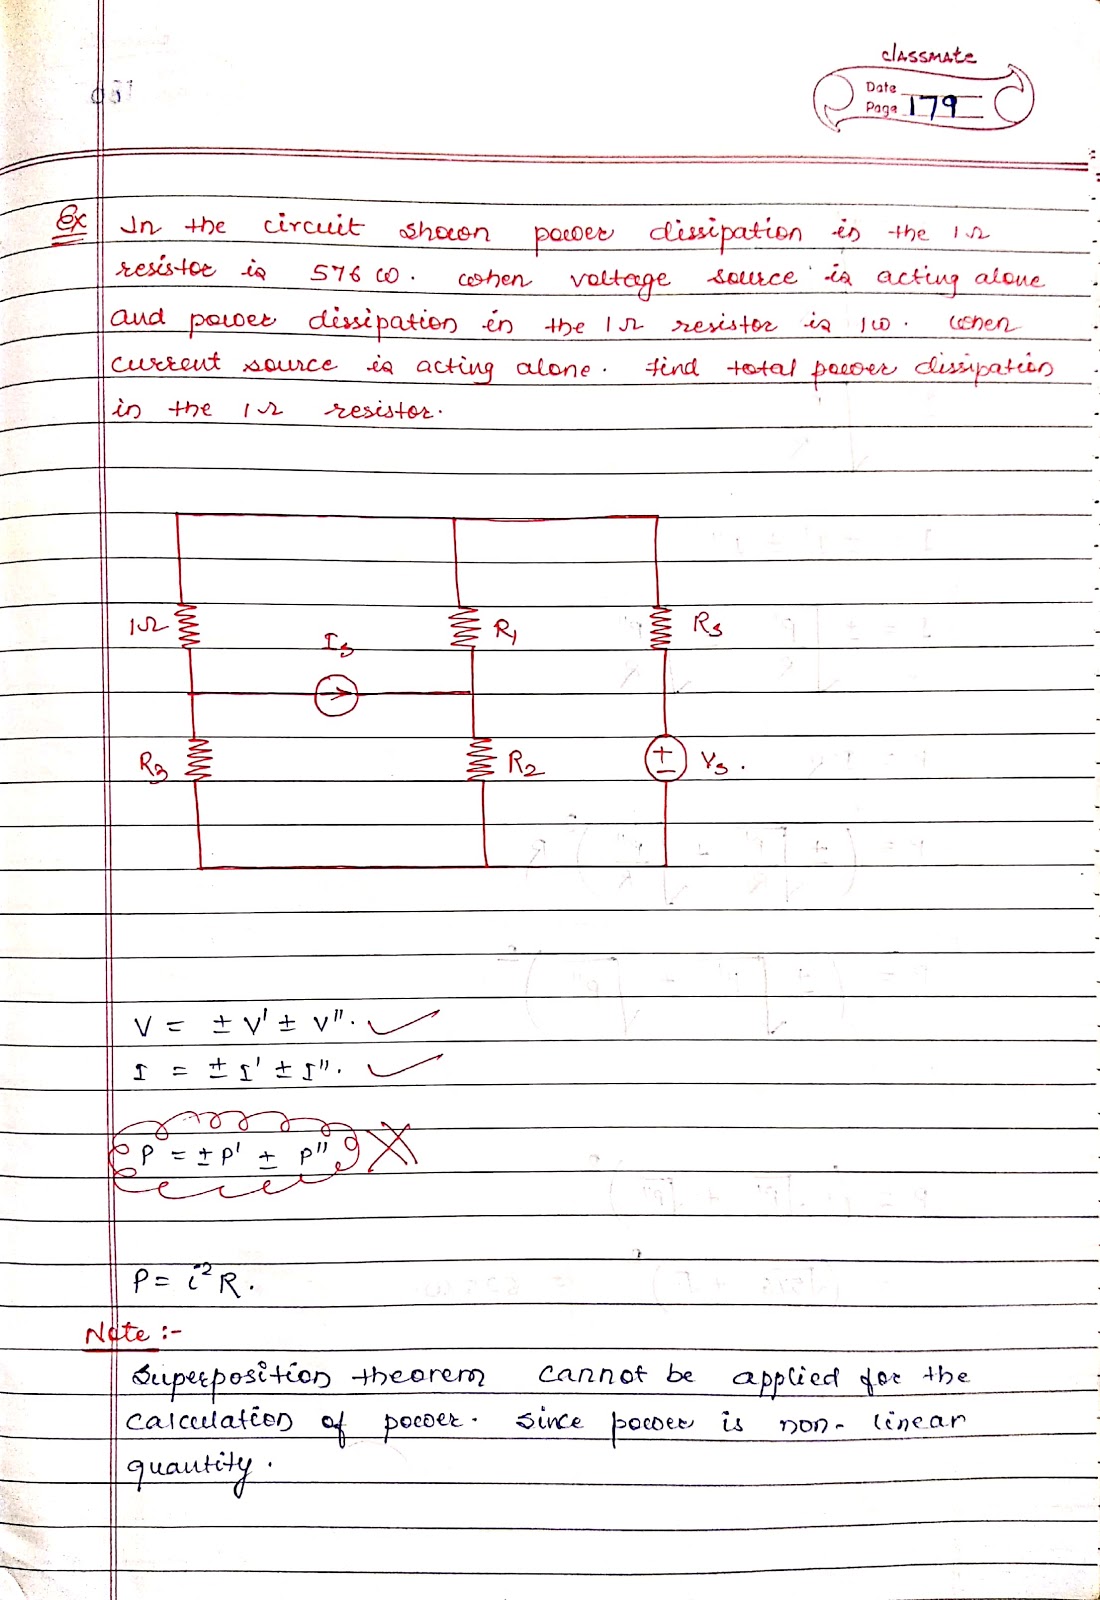 classmate
Date
Page 179
Ex In the circuit shown power dissipation in the 1Ω
resistor is 576 W. when voltage source is acting alone
and power dissipation in the 1Ω resistor is 1W. when
current source is acting alone. find total power dissipation
in the 1Ω resistor.
1Ω
Is
R1
Rs
R3
R2
+
-
Vs.
V = ± V' ± V".
I = ± I' ± I".
P = ± P' ± P"
P = i²R.
Note :-
Superposition theorem cannot be applied for the
calculation of power. since power is non-linear
quantity.